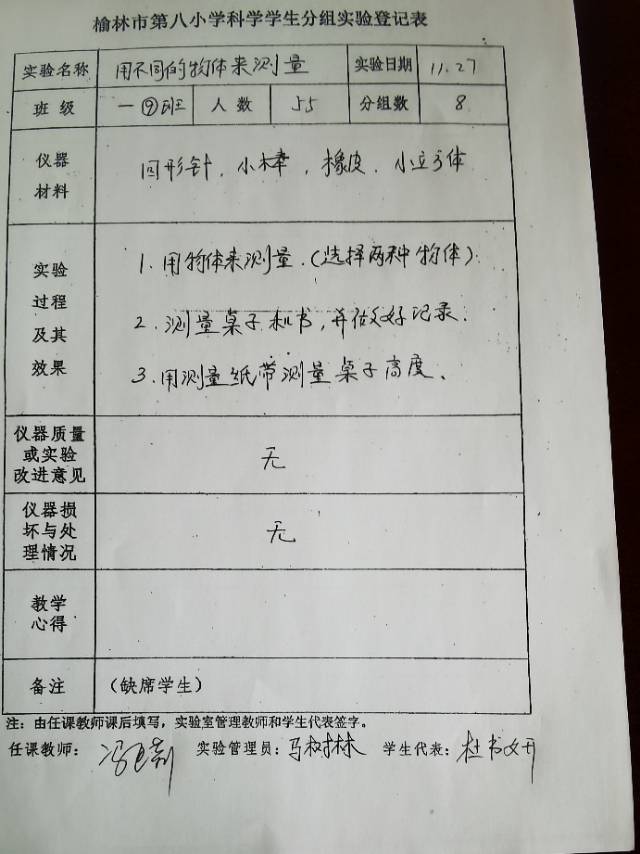 榆林市第八小学科学学生分组实验登记表
实验名称 用不同的物体来测量 实验日期 11.27
班级 一⑨班 人数 55 分组数 8
仪器
材料
回形针、小棒、橡皮、小立方体
实验
过程
及其
效果
1.用物体来测量.(选择两种物体)
2.测量桌子和书,并做好记录.
3.用测量纸带测量桌子高度.
仪器质量
或实验
改进意见
无
仪器损
坏与处
理情况
无
教学
心得
备注 (缺席学生)
注:由任课教师课后填写,实验室管理教师和学生代表签字。
任课教师: 冯 实验管理员:马树林 学生代表:杜书妍